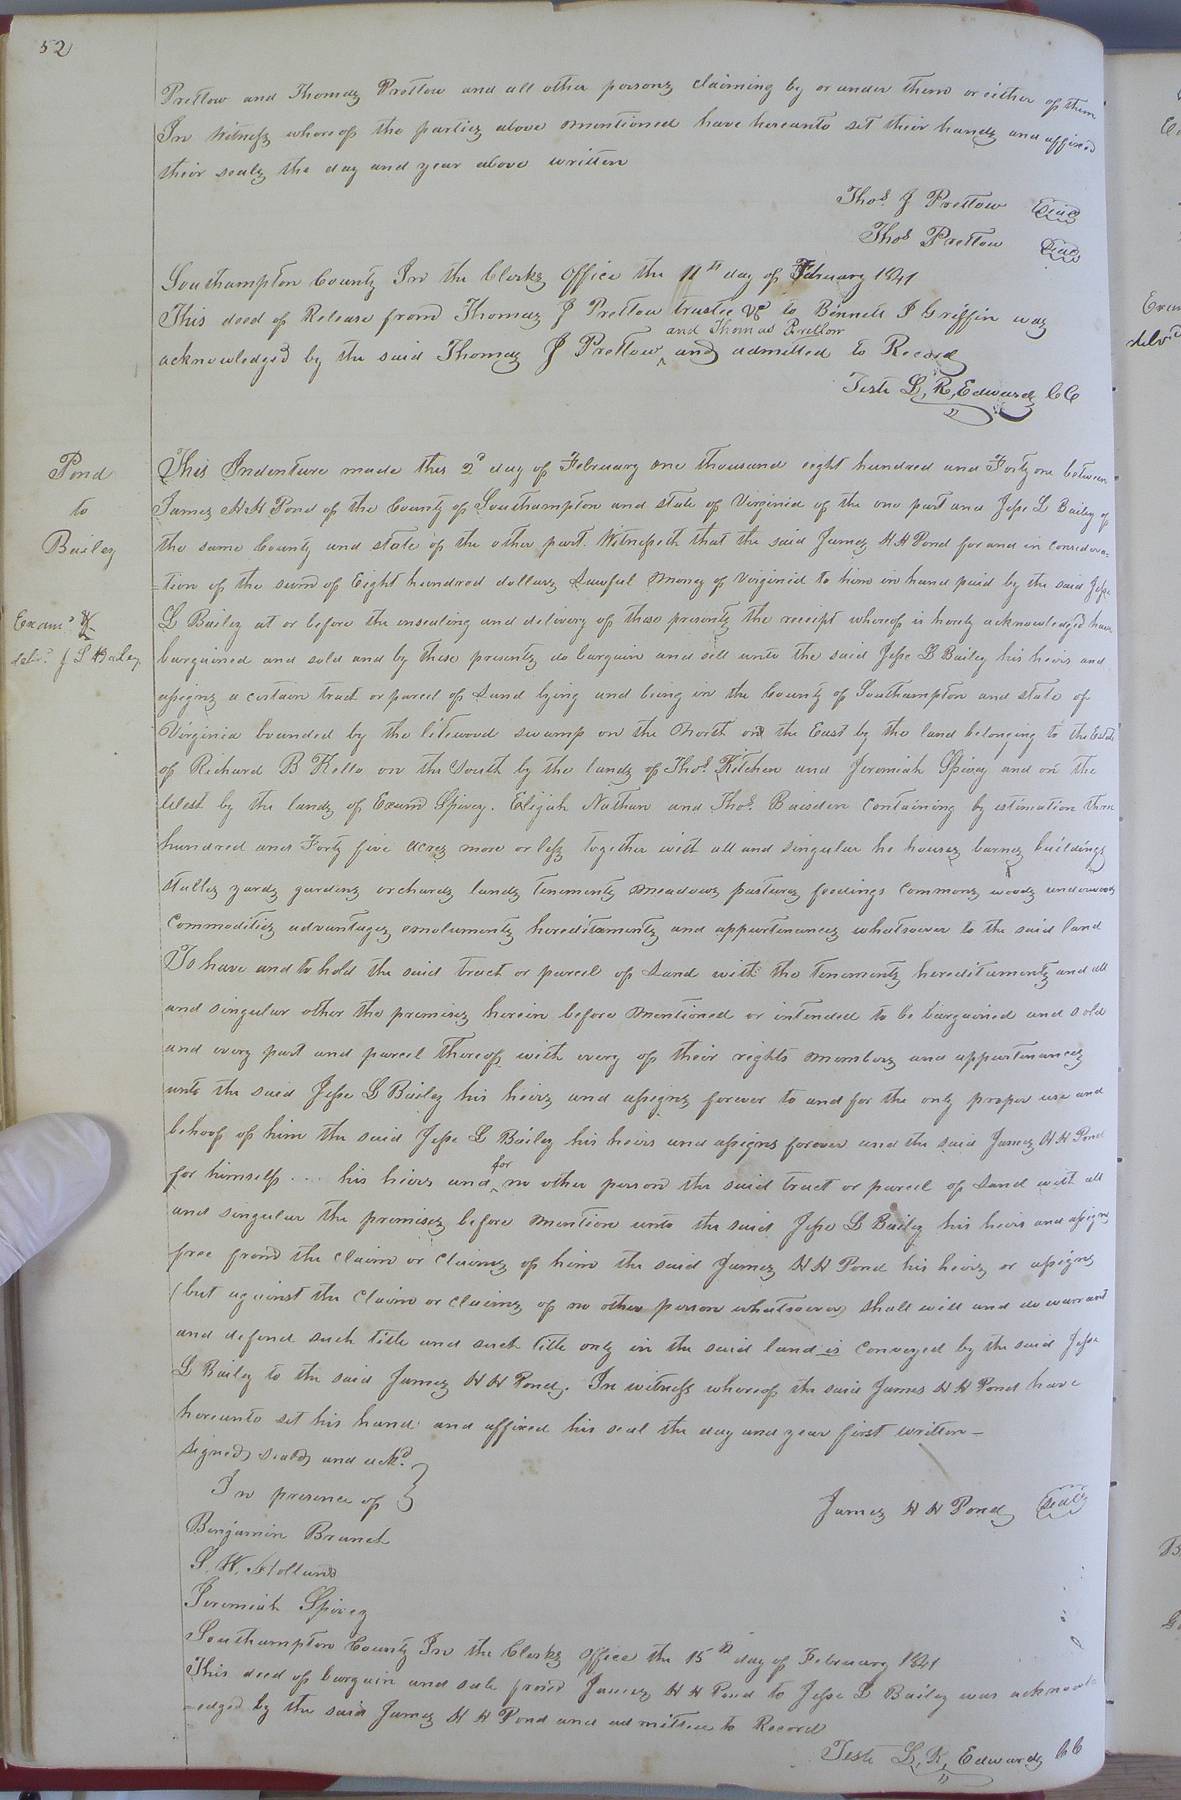 52
Pretlow and Thomas Pretlow and all other persons claiming by or under them or either of them
In witness whereof the parties above mentioned have hereunto set their hands and affixed
their seals the day and year above written
Thos J Pretlow Seal
Thos Pretlow Seal
Southampton County In the Clerks Office the 11th day of February 1841
This deed of Release from Thomas J Pretlow trustee &c to Bennett J Griffin was
and Thomas Pretlow
acknowledged by the said Thomas J Pretlow ^ and admitted to Record
Teste L. R. Edwards CC
Pond
to
Bailey
Examd &
deld J L Bailey
This Indenture made this 2d day of February one thousand eight hundred and Forty one between
James H H Pond of the County of Southampton and state of Virginia of the one part and Jesse L Bailey of
the same County and state of the other part. Witnesseth that the said James H H Pond for and in considera=
=tion of the sum of Eight hundred dollars Lawful Money of Virginia to him in hand paid by the said Jesse
L Bailey at or before the unsealing and delivery of these presents the receipt whereof is hereby acknowledged have
bargained and sold and by these presents do bargain and sell unto the said Jesse L Bailey his heirs and
assigns a certain tract or parcel of Land lying and being in the County of Southampton and state of
Virginia bounded by the litewood swamp on the North on the East by the land belonging to the Estate
of Richard B Kello on the South by the lands of Thos Kitchen and Jeremiah Spivey and on the
West by the lands of Exum Spivey. Elijah Nathan and Thos. Baisden Containing by estimation three
hundred and Forty five Acres more or less together with all and singular he houses barnes buildings
stalls yards gardens orchards lands tenements meadows pastures feedings commons woods underwoods
Commodities advantages emoluments hereditaments and appurtenances whatsoever to the said land
To have and to hold the said tract or parcel of Land with the tenements hereditaments and all
and singular other the premises herein before mentioned or intended to be bargained and sold
and every part and parcel thereof with every of their rights members and appurtenances
unto the said Jesse L Bailey his heirs and assigns forever to and for the only proper use and
behoof of him the said Jesse L Bailey his heirs and assigns forever and the said James H H Pond
for
for himself .... his heirs and ^ no other person the said tract or parcel of Land with all
and singular the premises before mention unto the said Jesse L Bailey his heirs and assigns
free from the claim or claims of him the said James H H Pond his heirs or assigns
(but against the claim or claims of no other person whatsoever) shall will and do warrant
and defend such title and such title only in the said land is conveyed by the said Jesse
L Bailey to the said James H H Pond. In witness whereof the said James H H Pond have
hereunto set his hand and affixed his seal the day and year first written –
Signed, seald, and ackd.
In presence of
James H H Pond Seal
Benjamin Branch
S. W. Holland
Jeremiah Spivey
Southampton County In the Clerks Office the 15th day of February 1841
This deed of bargain and sale from James H H Pond to Jesse L Bailey was acknowl-
=edged by the said James H H Pond and admitted to Record
Teste L. R. Edwards CC